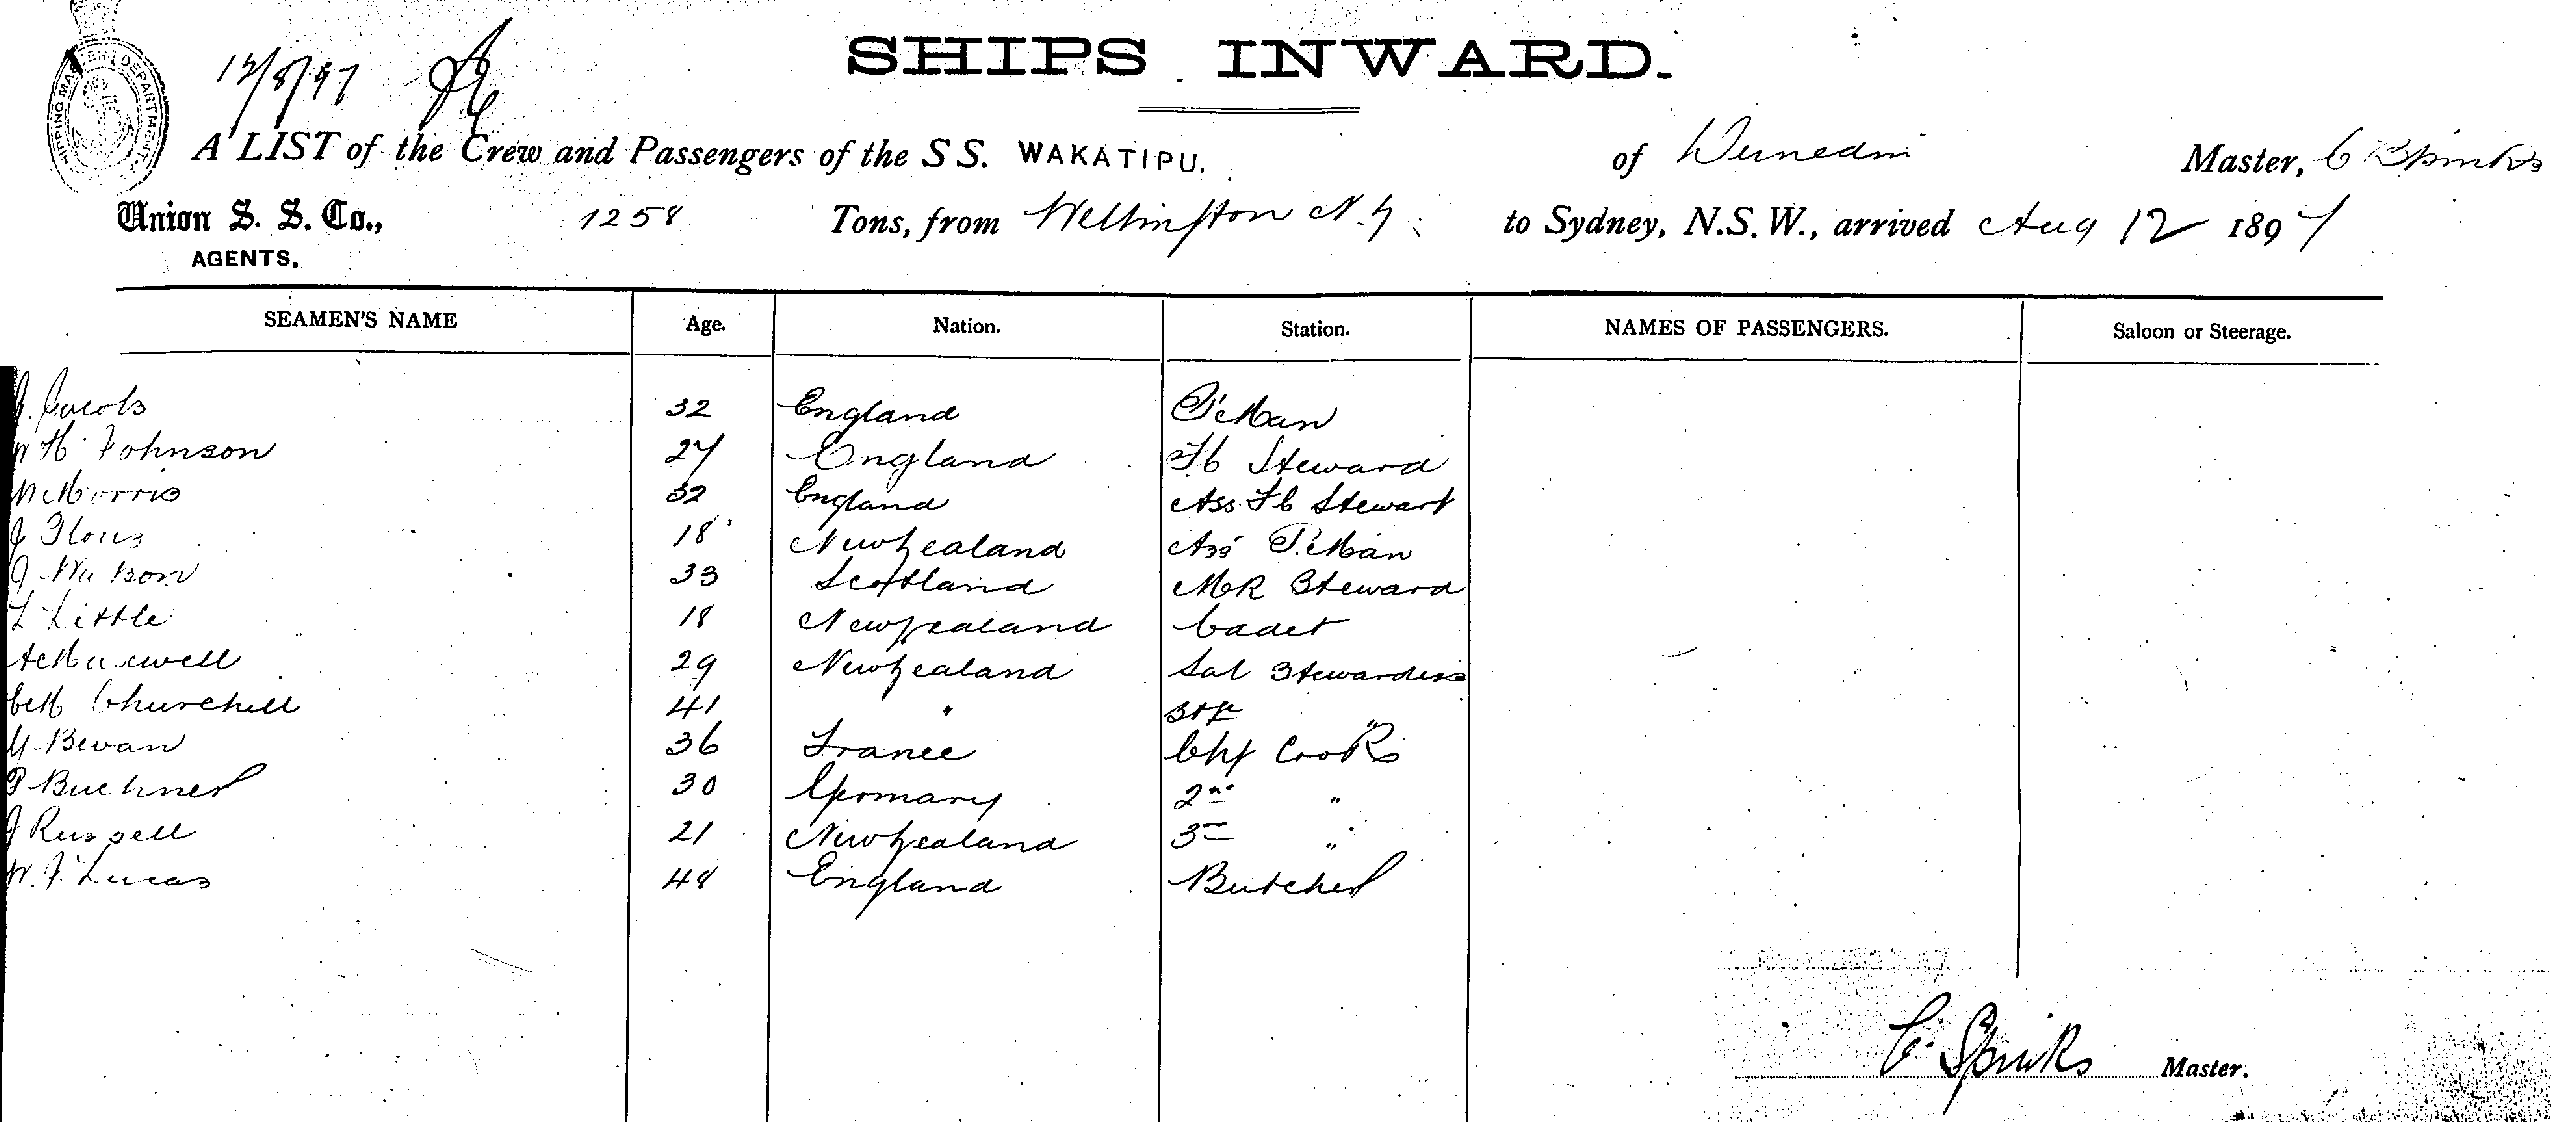 12/8/97
SHIPS INWARD.
A LIST of the Crew and Passengers of the S S. WAKATIPU. of Dunedin Master, C Spinks
Union S. S. Co., 1258 Tons, from Wellington N.Z. to Sydney, N.S.W., arrived Aug 12 1897
AGENTS.
SEAMEN'S NAME Age. Nation. Station. NAMES OF PASSENGERS. Saloon or Steerage.
Jacobs 32 England P. Man
H Johnson 27 England Steward
Morris 32 England Ass Stewart
J 18 New Zealand Ass P. Man
J Watson 33 Scotland MR Steward
L Little 18 New Zealand Cadet
A Maxwell 29 New Zealand Sal Stewardess
Churchill 41 "
Bevan 36 France Chf Cook
P Buchner 30 Germany 2nd "
J Russell 21 New Zealand 3 "
W. J. Lucas 48 England Butcher
C. Spinks Master.